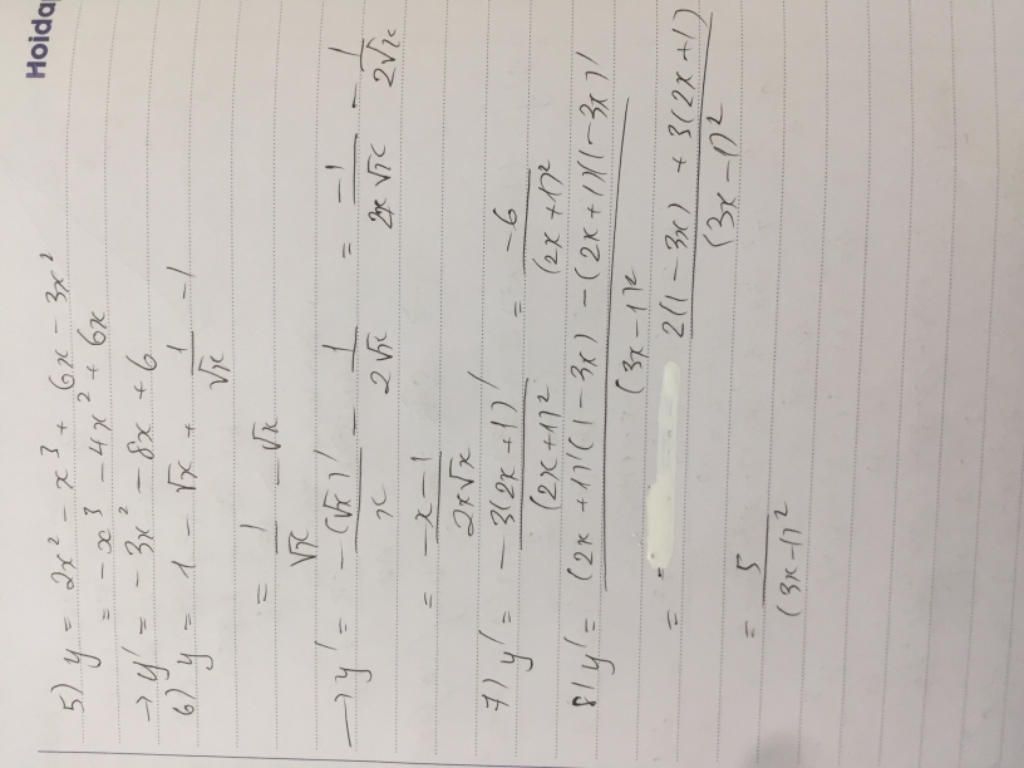 Hoidap
5) y = 2x² - x³ + 6x - 3x²
= - x³ - 4x² + 6x
→ y' = - 3x² - 8x + 6
6) y = 1 - √x + 1/√x - 1
= 1/√x - √x
→ y' = -(√x)'/x - 1/2√x = -1/2x√x - 1/2√x
= -x-1/2x√x
7) y' = -3(2x+1)'/(2x+1)² = -6/(2x+1)²
8) y' = (2x+1)'(1-3x) - (2x+1)(1-3x)'/(3x-1)²
= 2(1-3x) + 3(2x+1)/(3x-1)²
= 5/(3x-1)²